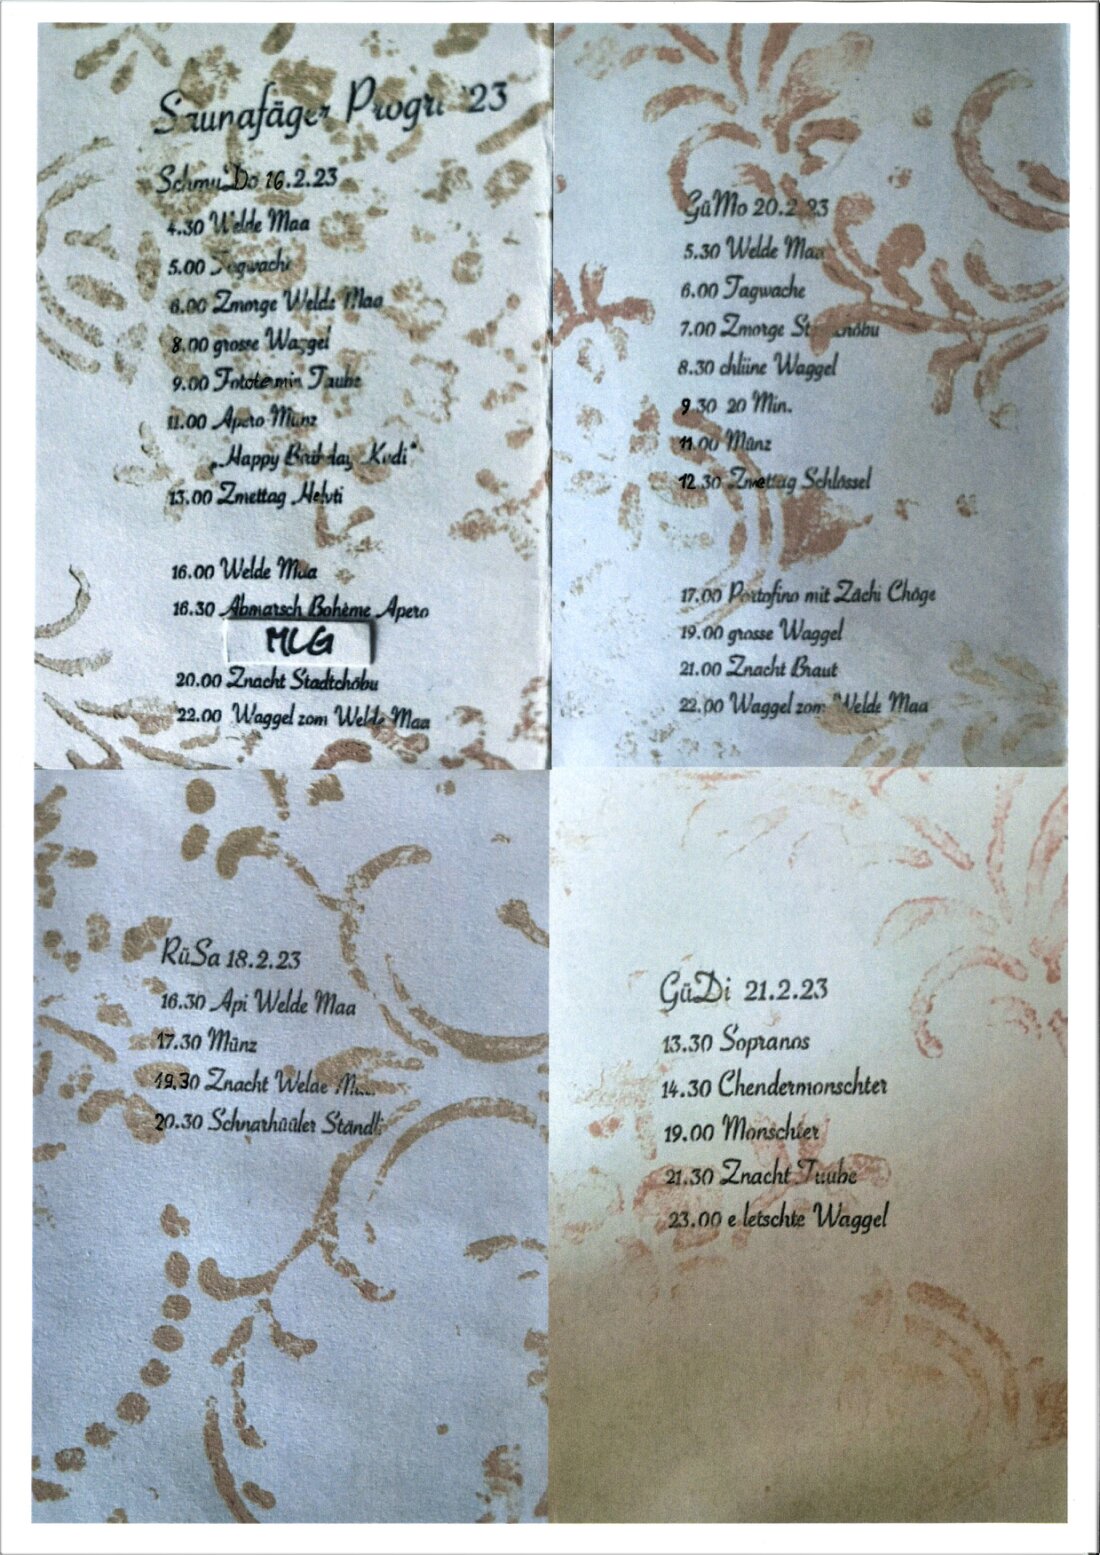 '23
SchmuDo 16.2.23
4.30 Welde Maa
5.00
6.00 Zmorge Welde Maa
8.00 grosse Waggel
9.00 Taube
11.00 Apero Münz
„Happy Birthday Kudi"
13.00 Zmettag Helvti
16.00 Welde Maa
16.30 Abmarsch Bohème Apero
MLG
20.00 Znacht Stadtchöbu
22.00 Waggel zom Welde Maa
GüMo 20.2.23
5.30 Welde Maa
6.00 Tagwache
7.00 Zmorge
8.30 chliine Waggel
9.30 20 Min.
11.00 Münz
12.30 Zmettag Schlössel
17.00 Portofino mit Zächi Chöge
19.00 grosse Waggel
21.00 Znacht Braut
22.00 Waggel zom Welde Maa
RüSa 18.2.23
16.30 Api Welde Maa
17.30 Münz
19.30 Znacht Welde
20.30 Schnarhüüler Ständli
GüDi 21.2.23
13.30 Sopranos
14.30 Chendermonschter
19.00 Monschter
21.30 Znacht Tuube
23.00 e letschte Waggel